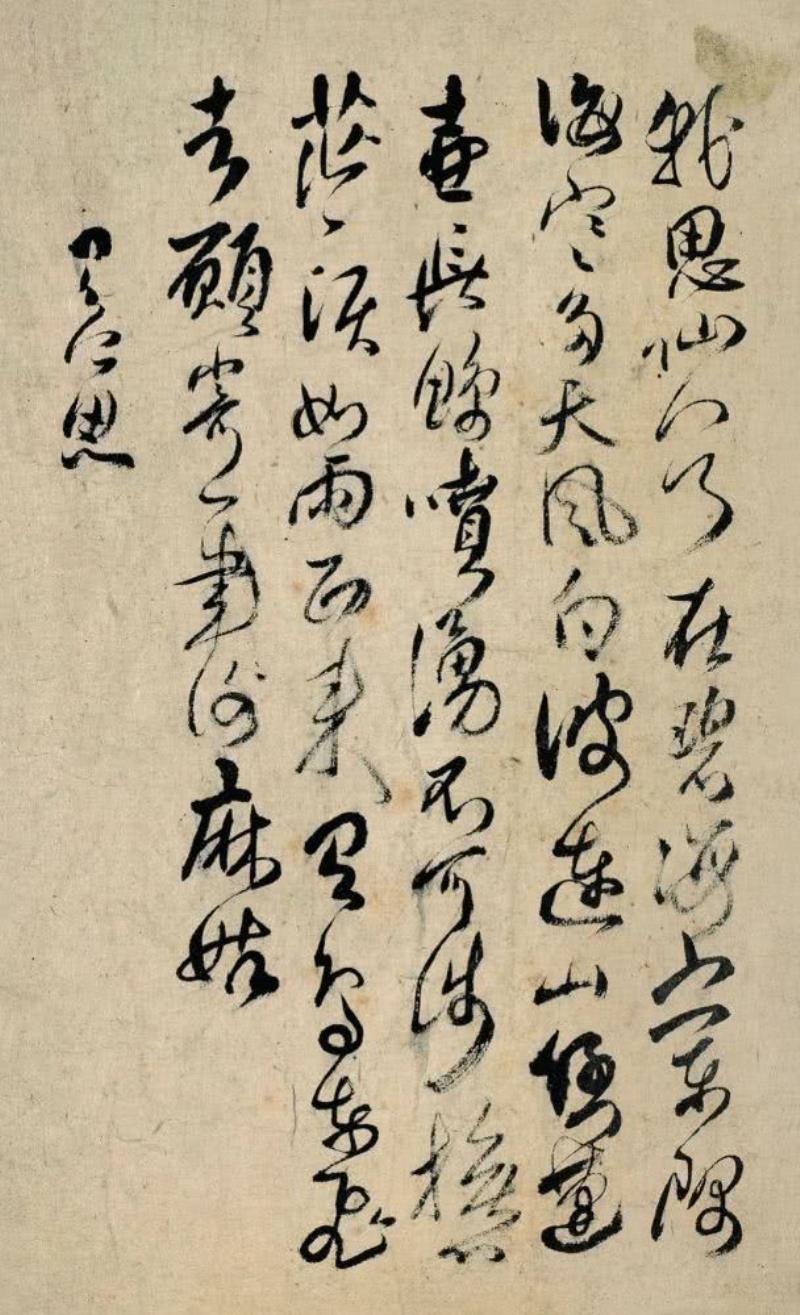 我思仙人乃在碧海之東隅
海寒多天風白波連山倒蓬
壺長鯨噴湧不可涉撫心
茫々淚如雨西來青鳥東飛
去願寄一書謝麻姑
思